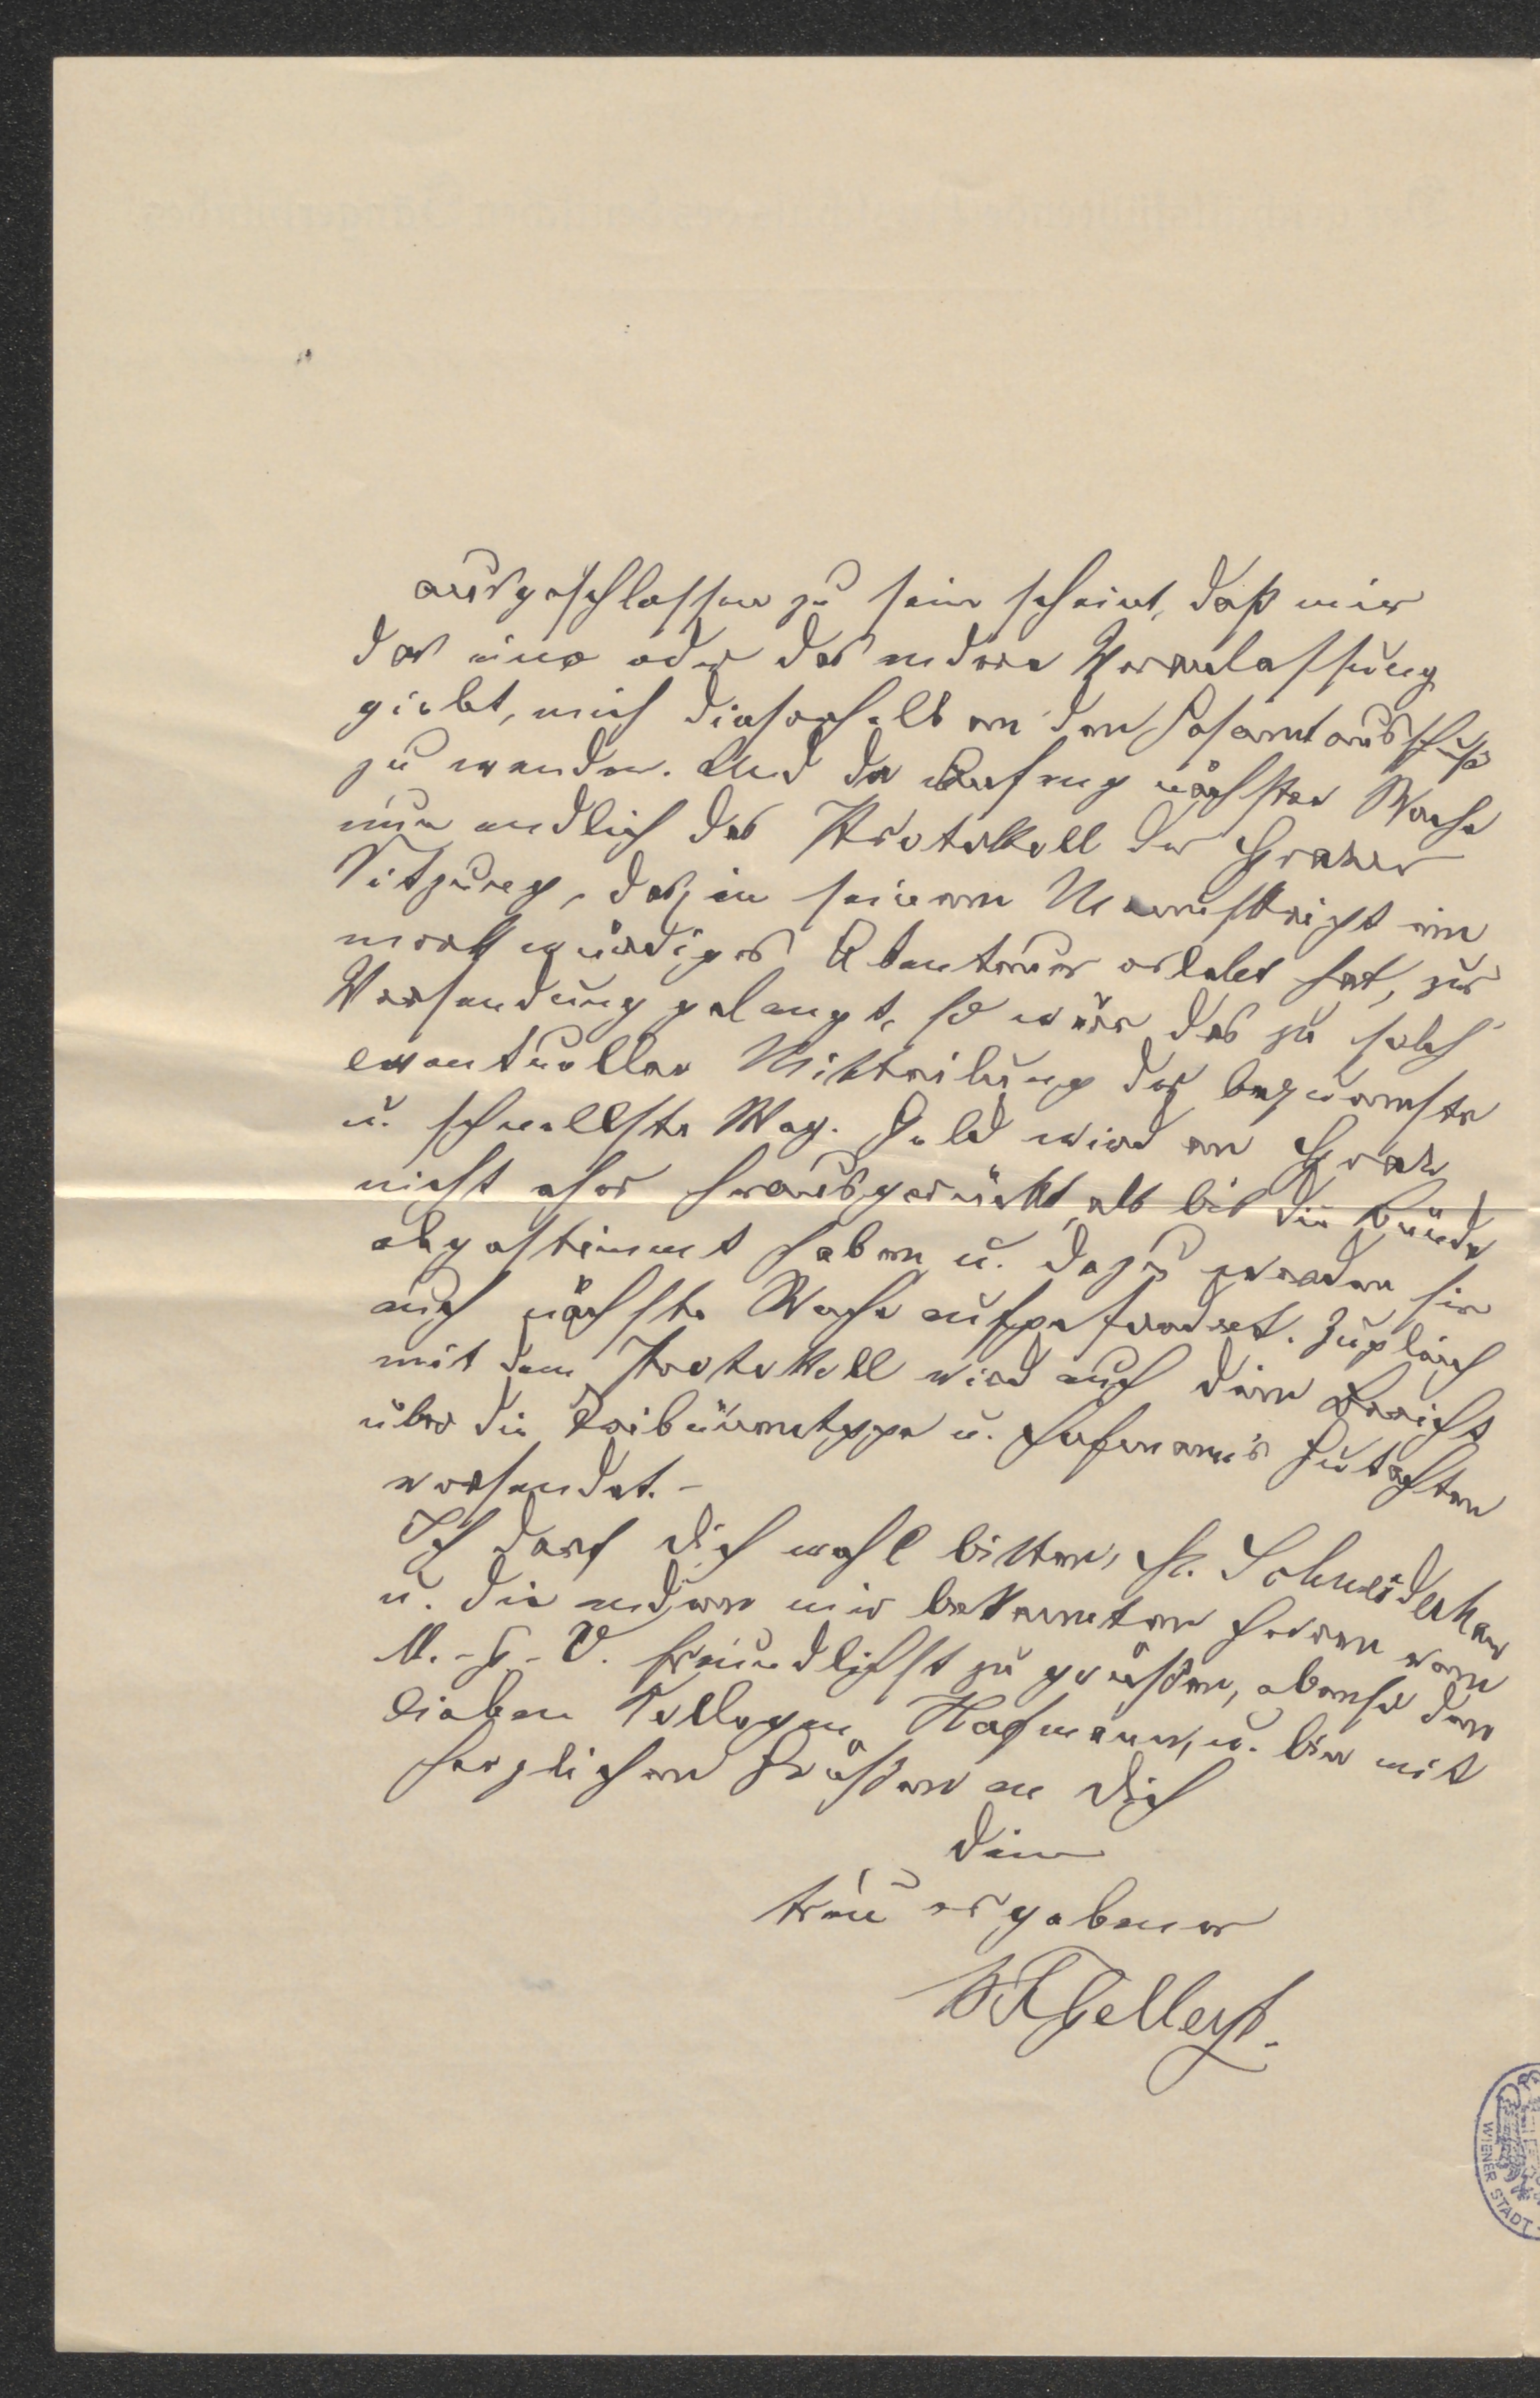 ausgeschlossen zu sein scheint, daß mir
das eine oder das andere Veranlassung
giebt, mich dieserhalb an den Gesamtausschuß
zu wenden. Und da Anfang nächster Woche
nun endlich das Protokoll der Grazer
Sitzung, das in seinem Manuskript ein
merkwürdiges Abenteuer erlebt hat, zur
Versendung gelangt, so wäre das zu solch
eventueller Mitteilung der bequemste
u. schnellste Weg. Geld wird an Graz
nicht eher herausgerückt, als bis die Bünde
abgestimmt haben u. dazu werden sie
auch nächste Woche aufgefordert. Zugleich
mit dem Protokoll wird auch dein Bericht
über die Tribünentreppe u. Hofmann's Gutachten
versendet. -
Ich darf dich wohl bitten, H. Schneiderhan
u. die anderen mir bekannten Herren vom
M.-G.-V. freundlichst zu grüßen, ebenso den
lieben Kollegen Hofmann, u. bin mit
herzlichen Grüßen an dich
dein
treu ergebener
Gellert.
WIENER STADT-